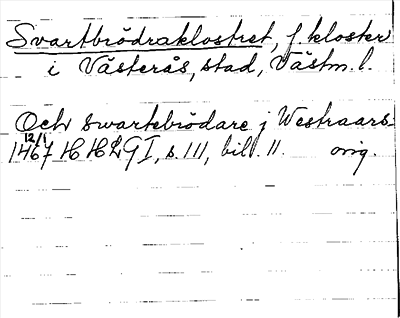 Svartbrödraklostret, f. kloster
i Västerås, stad, Västm. l.
Och swartebrödare j Westraars
12/1
1467 HHLG I, s. 111, bil. 11. orig.